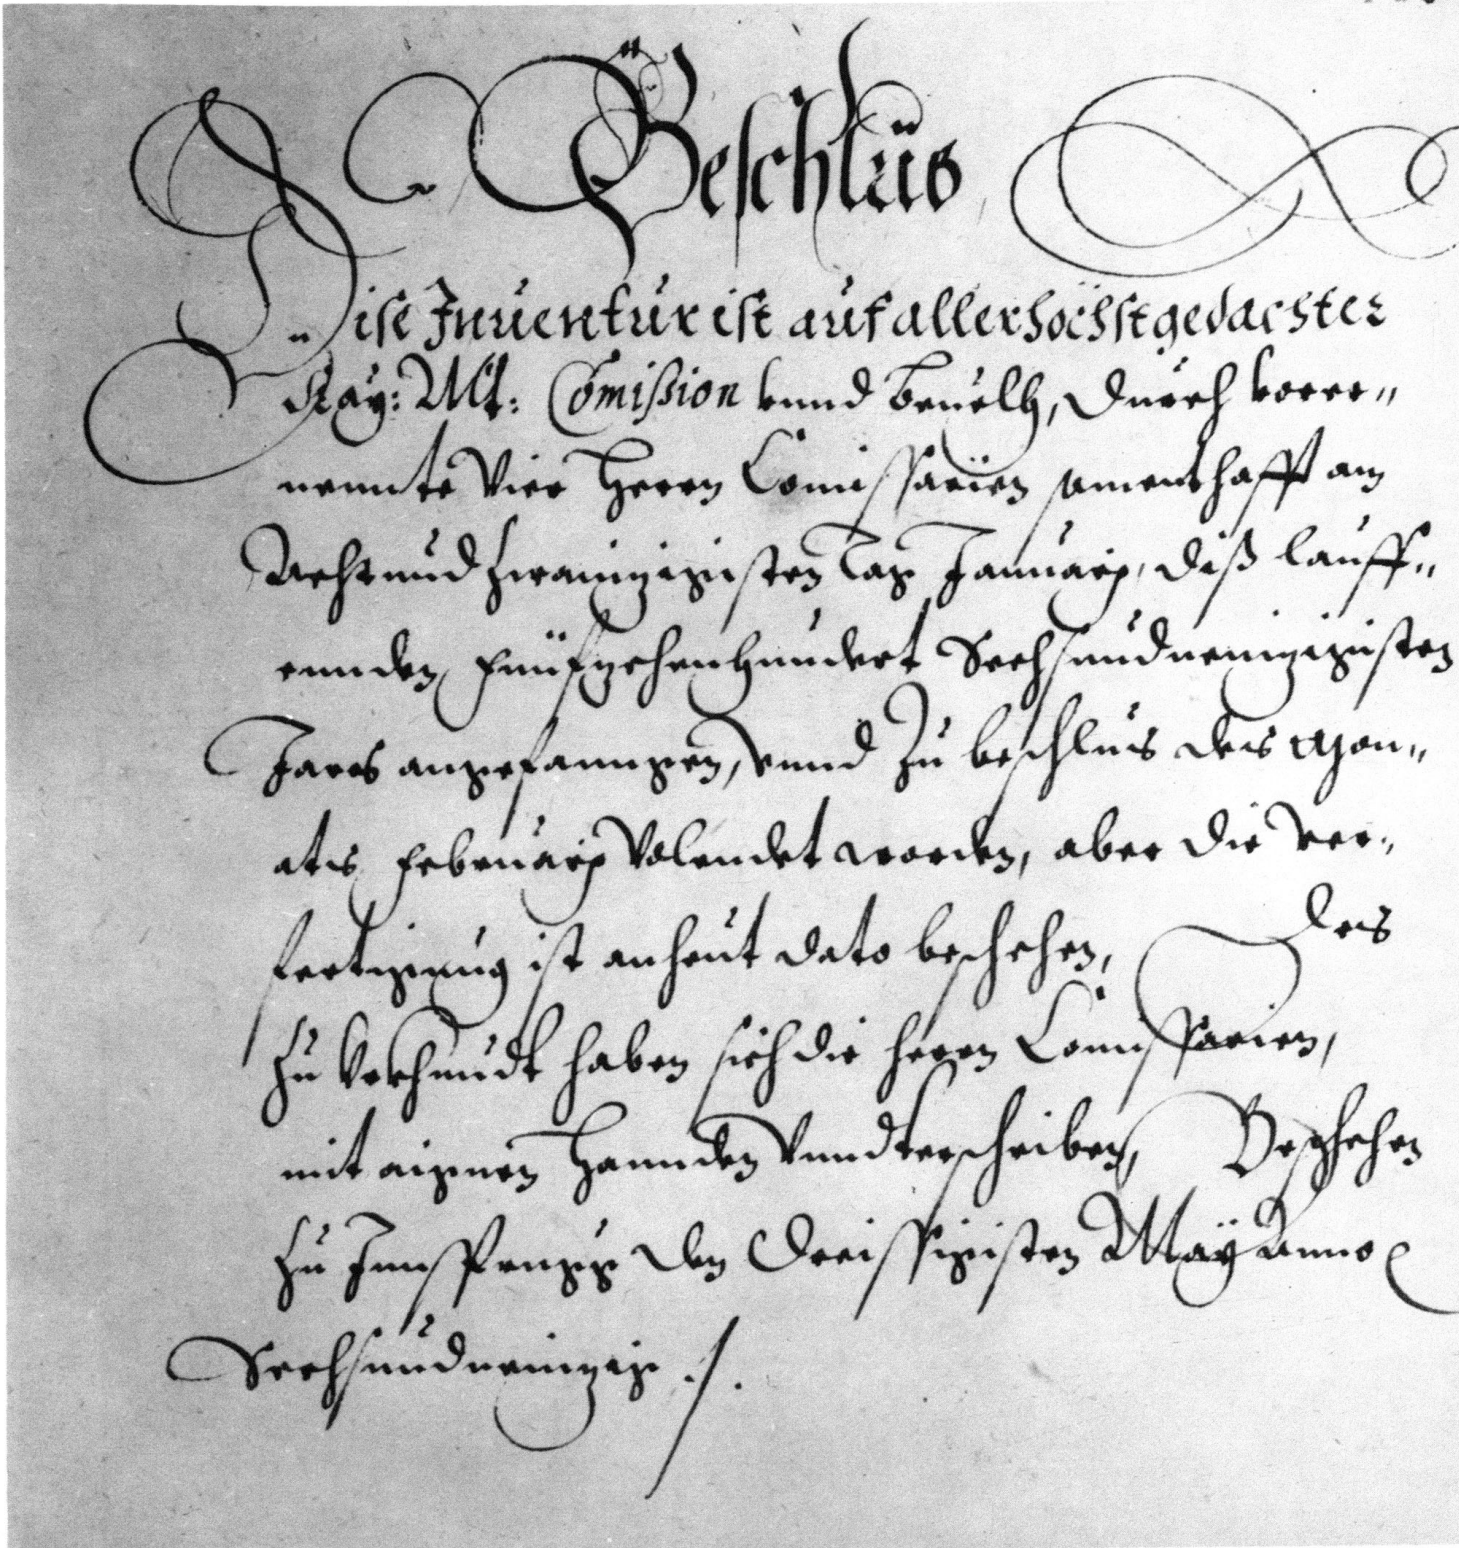 Beschlus
Dise Inuentur ist auf allerhöchstgedachter
Kay: Mt: Comißion vnnd beuelh, durch vorer„
nennte Vier Herrn Comissarien sament hafft am
Achtundzwainzigisten Tag Januarij, diß lauff„
ennden Funfzehenhundert Sechsundneunzigisten
Jares angefanngen, vnnd Zu beschluss des Mon„
ats Februarij Volendet worden, aber die Ver„
fertigung ist an heut dato beschehen, Des
Zu Vrkhundt haben sich die herrn Comissarien,
mit aignen Hannden Vnndterschriben, Beschehen
Zu Innsprugg den Dreissigisten Maÿ Anno
Sechsundneunzig ./.